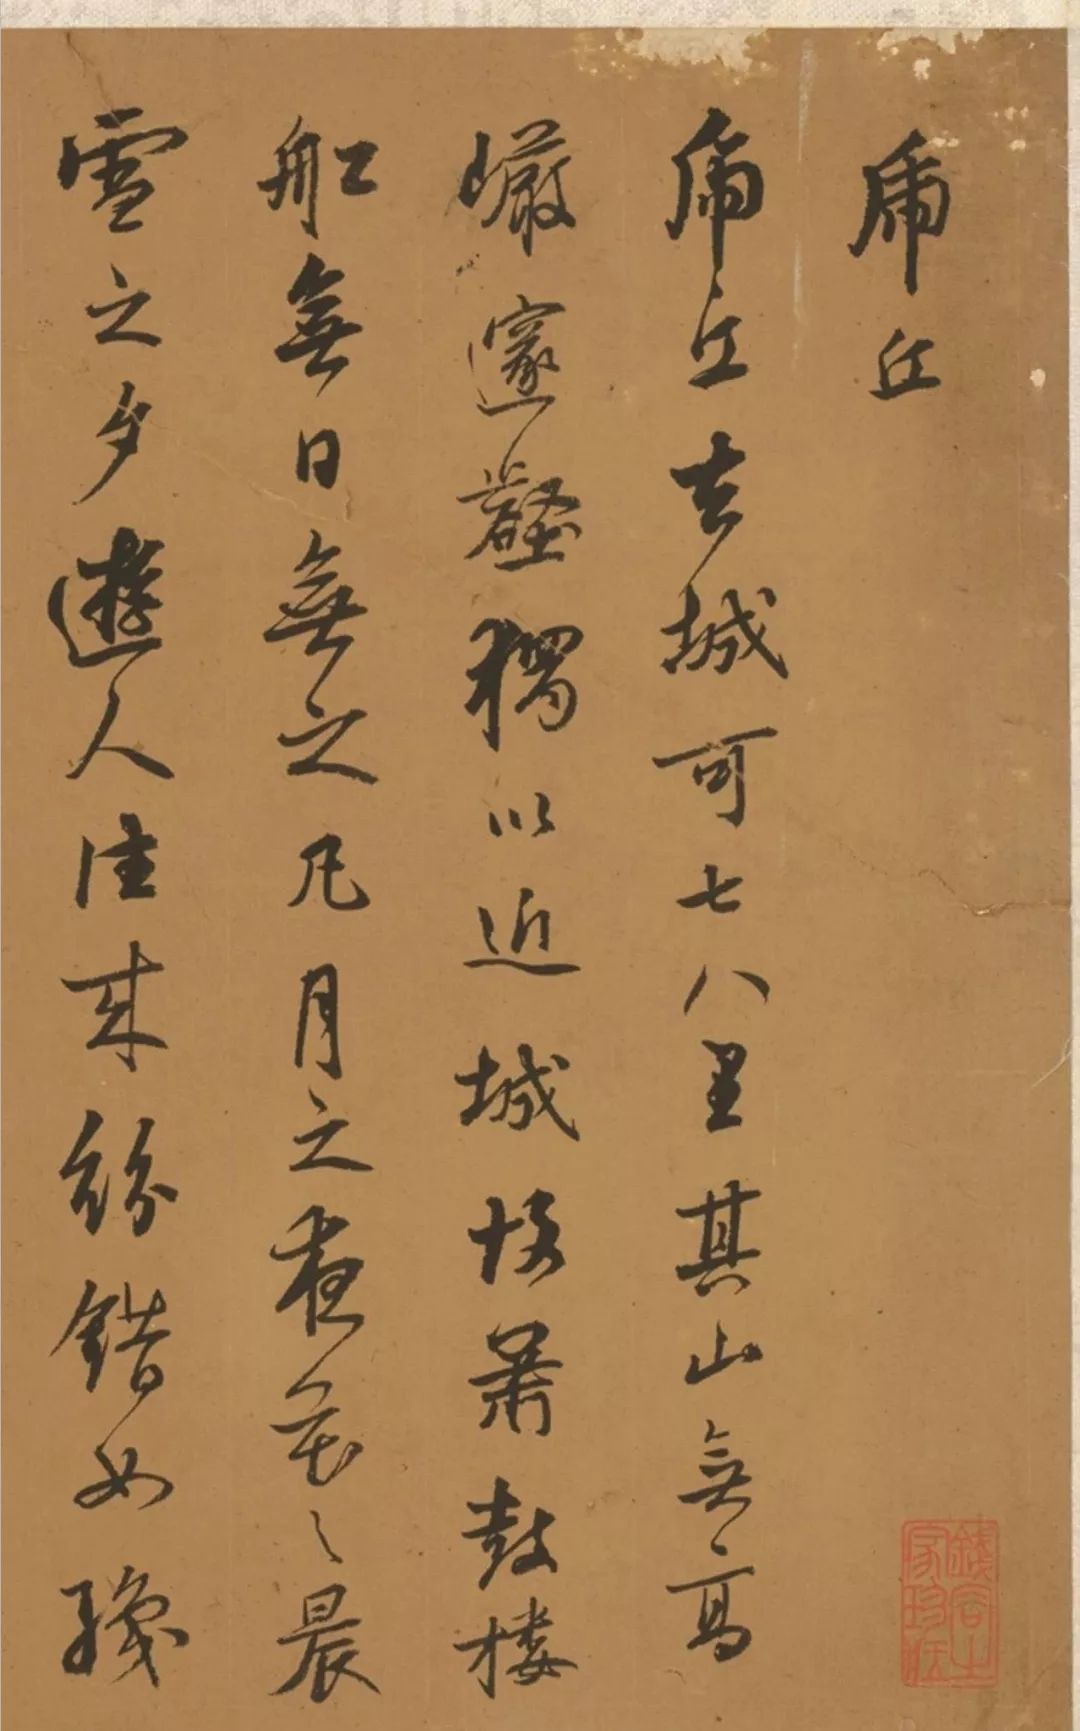 虎丘
虎丘去城可七八里其山無高
巖邃壑獨以近城故簫鼓樓
船無日無之凡月之夜花之晨
雪之夕遊人往来紛錯如綉